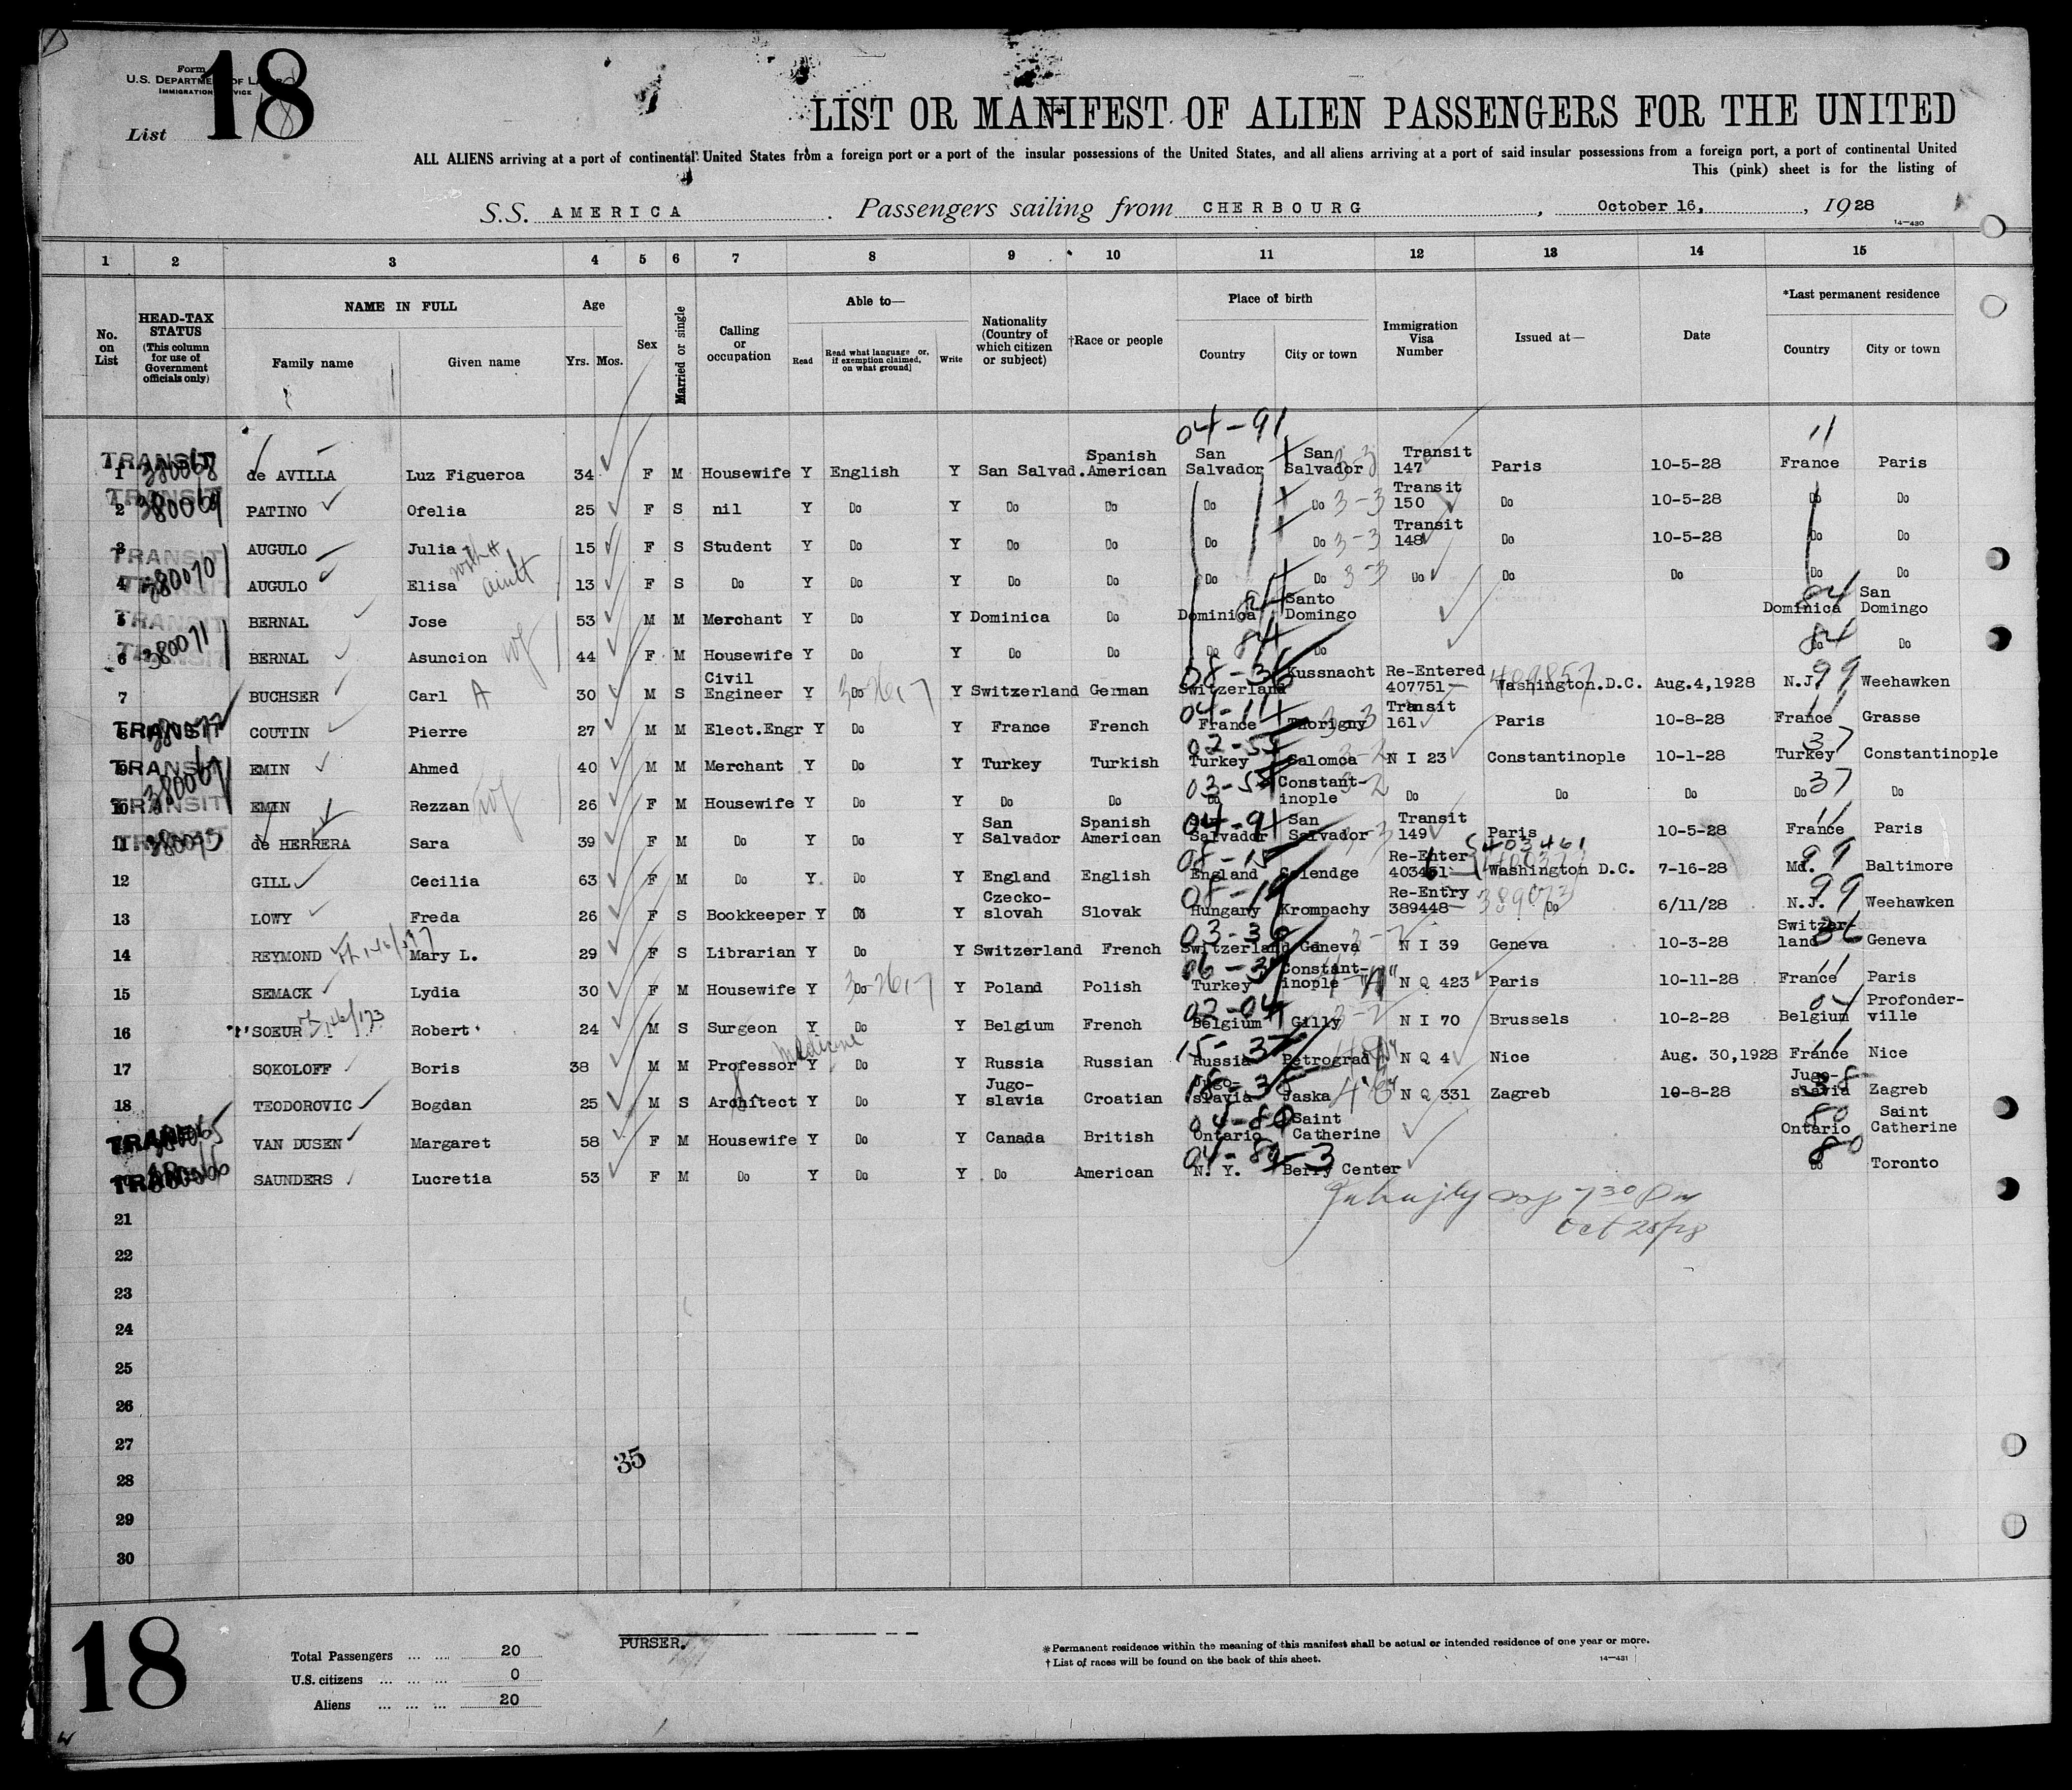 Form
U.S. DEPARTMENT OF LABOR
IMMIGRATION SERVICE
List 18
LIST OR MANIFEST OF ALIEN PASSENGERS FOR THE UNITED
ALL ALIENS arriving at a port of continental United States from a foreign port or a port of the insular possessions of the United States, and all aliens arriving at a port of said insular possessions from a foreign port, a port of continental United
This (pink) sheet is for the listing of
S.S. AMERICA. Passengers sailing from CHERBOURG, October 16, 1928
14—430
1 2 3 4 5 6 7 8 9 10 11 12 13 14 15
No. on List HEAD-TAX STATUS (This column for use of Government officials only) NAME IN FULL Family name Given name Age Yrs. Mos. Sex Married or single Calling or occupation Able to— Read Read what language or, if exemption claimed, on what ground] Write Nationality (Country of which citizen or subject) †Race or people Place of birth Country City or town Immigration Visa Number Issued at— Date *Last permanent residence Country City or town
04-91 11
1 TRANSIT 380068 de AVILLA Luz Figueroa 34 F M Housewife Y English Y San Salvad. Spanish American San Salvador San Salvador 3-3 Transit 147 Paris 10-5-28 France Paris
2 TRANSIT 380069 PATINO Ofelia 25 F S nil Y Do Y Do Do Do Do 3-3 Transit 150 Do 10-5-28 Do Do
3 TRANSIT AUGULO Julia with aunt 15 F S Student Y Do Y Do Do Do Do 3-3 Transit 148 Do 10-5-28 Do Do
4 380070 AUGULO Elisa 13 F S Do Y Do Y Do Do Do Do 3-3 Do Do Do Do Do
5 TRANSIT BERNAL Jose 53 M M Merchant Y Do Y Dominica Do Dominica 84 Santo Domingo Dominica 84 San Domingo
6 TRANSIT 380071 BERNAL Asuncion wf 44 F M Housewife Y Do Y Do Do Do 84 Do Do 84 Do
7 BUCHSER Carl A 30 M S Civil Engineer Y Do 3-2617 Y Switzerland German Switzerland 08-36 Kussnacht Re-Entered 407751 409857 Washington.D.C. Aug.4,1928 N.J. 99 Weehawken
8 TRANSIT COUTIN Pierre 27 M M Elect.Engr Y Do Y France French France 04-11 Thorigny 3-3 Transit 161 Paris 10-8-28 France 11 Grasse
9 TRANSIT EMIN Ahmed 40 M M Merchant Y Do Y Turkey Turkish Turkey Salomca 3-2 N I 23 Constantinople 10-1-28 Turkey 37 Constantinople.
10 TRANSIT 380067 EMIN Rezzan wf 26 F M Housewife Y Do Y Do Do Do Constant-inople 3-2 Do Do Do Do 37 Do
11 TRANSIT de HERRERA Sara 39 F M Do Y Do Y San Salvador Spanish American Salvador 04-91 San Salvador Transit 149 Paris 10-5-28 France 11 Paris
12 GILL Cecilia 63 F M Do Y. Do Y England English England 08-15 Re-Enter 403461 Washington D.C. 7-16-28 Md. 99 Baltimore
13 LOWY Freda 26 F S Bookkeeper Y Do Y Czecko-slovah Slovak Hungary Krompachy Re-Entry 389448 389073 Do 6/11/28 N.J. 99 Weehawken
14 REYMOND Mary L. 29 F S Librarian Y Do Y Switzerland French Switzerland 03-36 Geneva N I 39 Geneva 10-3-28 Switzer-land 36 Geneva
15 SEMACK Lydia 30 F M Housewife Y Do 3-2617 Y Poland Polish Turkey Constant-inople N Q 423 Paris 10-11-28 France 11 Paris
16 SOEUR Robert 24 M S Surgeon Y Do Y Belgium French Belgium 02-04 Gilly 3-2 N I 70 Brussels 10-2-28 Belgium 04 Profonder-ville
17 SOKOLOFF Boris 38 M M Professor medicine Y Do Y Russia Russian Russia 15-37 Petrograd N Q 4 Nice Aug. 30,1928 France 11 Nice
18 TEODOROVIC Bogdan 25 M S Architect Y Do Y Jugo-slavia Croatian Jugo-slavia Jaska N Q 331 Zagreb 10-8-28 Jugo-slavia 38 Zagreb
VAN DUSEN Margaret 58 F M Housewife Y Do Y Canada British Ontario 04-80 Saint Catherine Ontario 80 Saint Catherine
SAUNDERS Lucretia 53 F M Do Y Do Y Do American N. Y. Berry Center Do 80 Toronto
21 730 Pm
22 Oct 25/28
23
24
25
26
27
35
28
29
30
18
Total Passengers 20
U.S. citizens 0
Aliens 20
PURSER.
*Permanent residence within the meaning of this manifest shall be actual or intended residence of one year or more.
†List of races will be found on the back of this sheet.
14—431